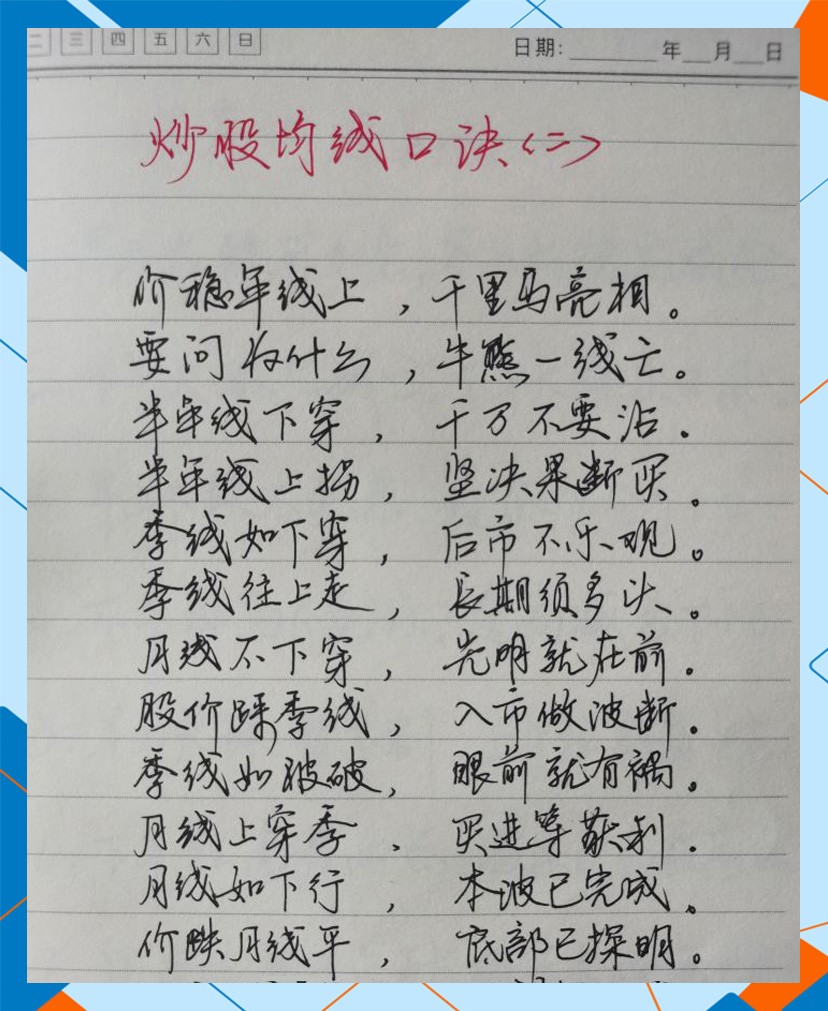 二 三 四 五 六 日
日期: 年 月 日
炒股均线口诀(二)
价稳年线上，千里马亮相。
要问为什么，牛熊一线亡。
半年线下穿，千万不要沾。
半年线上拐，坚决果断买。
季线如下穿，后市不乐观。
季线往上走，长期须多头。
月线不下穿，光明就在前。
股价踩季线，入市做波断。
季线如被破，眼前就有祸。
月线上穿季，买进等获利.
月线如下行，本波已完成。
价跌月线平，底部已探明。